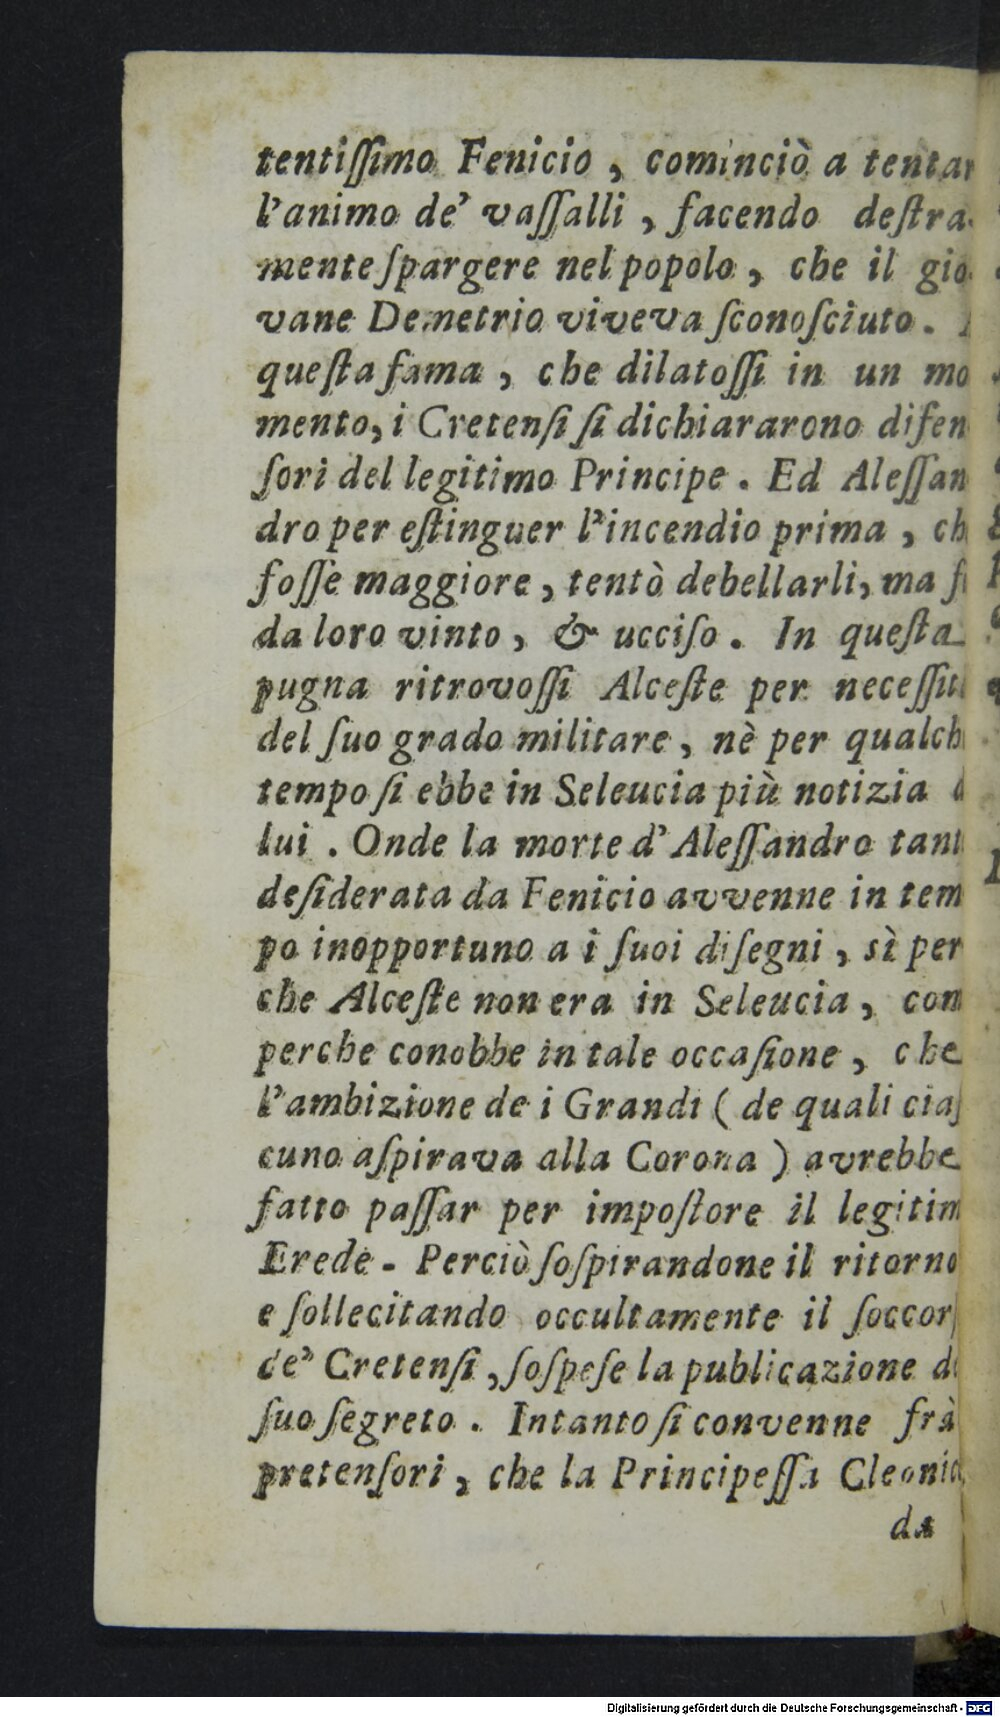 tentiſſimo Fenicio, cominciò a tentar
l'animo de' vaſſalli, facendo deſtra-
mente ſpargere nel popolo, che il gio-
vane Demetrio viveva ſconoſciuto.
queſta fama, che dilatoſſi in un mo
mento, i Cretenſi ſi dichiararono difen
ſori del legitimo Principe. Ed Aleſſan
dro per eſtinguer l'incendio prima, ch
foſſe maggiore, tentò debellarli, ma f
da loro vinto, & ucciſo. In queſta
pugna ritrovoſſi Alceſte per neceſſit
del ſuo grado militare, nè per qualch
tempo ſi ebbe in Seleucia più notizia d
lui. Onde la morte d'Aleſſandro tant
deſiderata da Fenicio avvenne in tem
po inopportuno a i ſuoi diſegni, sì per
che Alceſte non era in Seleucia, com
perche conobbe in tale occaſione, che
l'ambizione de i Grandi (de quali ciaſ
cuno aſpirava alla Corona) avrebbe
fatto paſſar per impoſtore il legitim
Erede. Perciò ſoſpirandone il ritorno
e ſollecitando occultamente il ſoccorſ
de' Cretenſi, ſoſpeſe la publicazione d
ſuo ſegreto. Intanto ſi convenne frà
pretenſori, che la Principeſſa Cleonic
da
Digitalisierung gefördert durch die Deutsche Forschungsgemeinschaft - DFG